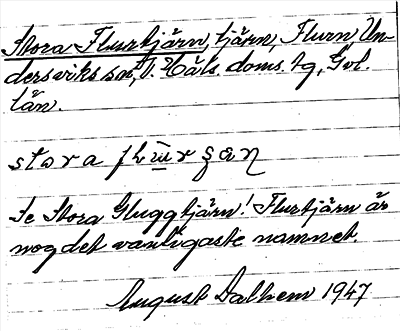 Stora Flurtjärn, tjärn, Flurn, Un-
dersviks sn, V. Häls. doms. tg, Gvl.
län.
stora
Se Stora Gluggtjärn! Flurtjärn är
nog det vanligaste namnet.
August Dalhem 1947